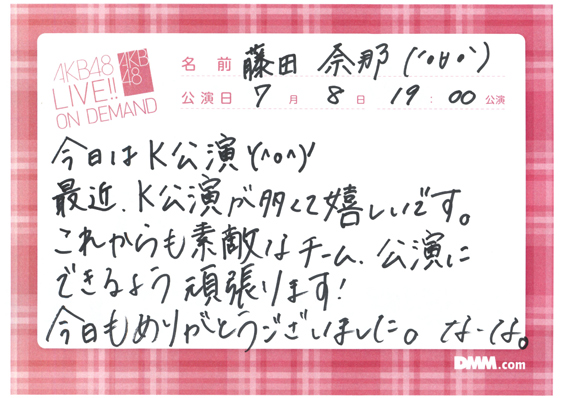 AKB48
LIVE!!
ON DEMAND
AKB
48
名前 藤田 奈那 (*´o∀o`)
公演日 7月 8日 19:00 公演
今日はK公演\(^o^)/
最近、K公演が多くて嬉しいです。
これからも素敵なチーム、公演に
できるよう頑張ります!
今日もありがとうございました。なーな。
DMM.com